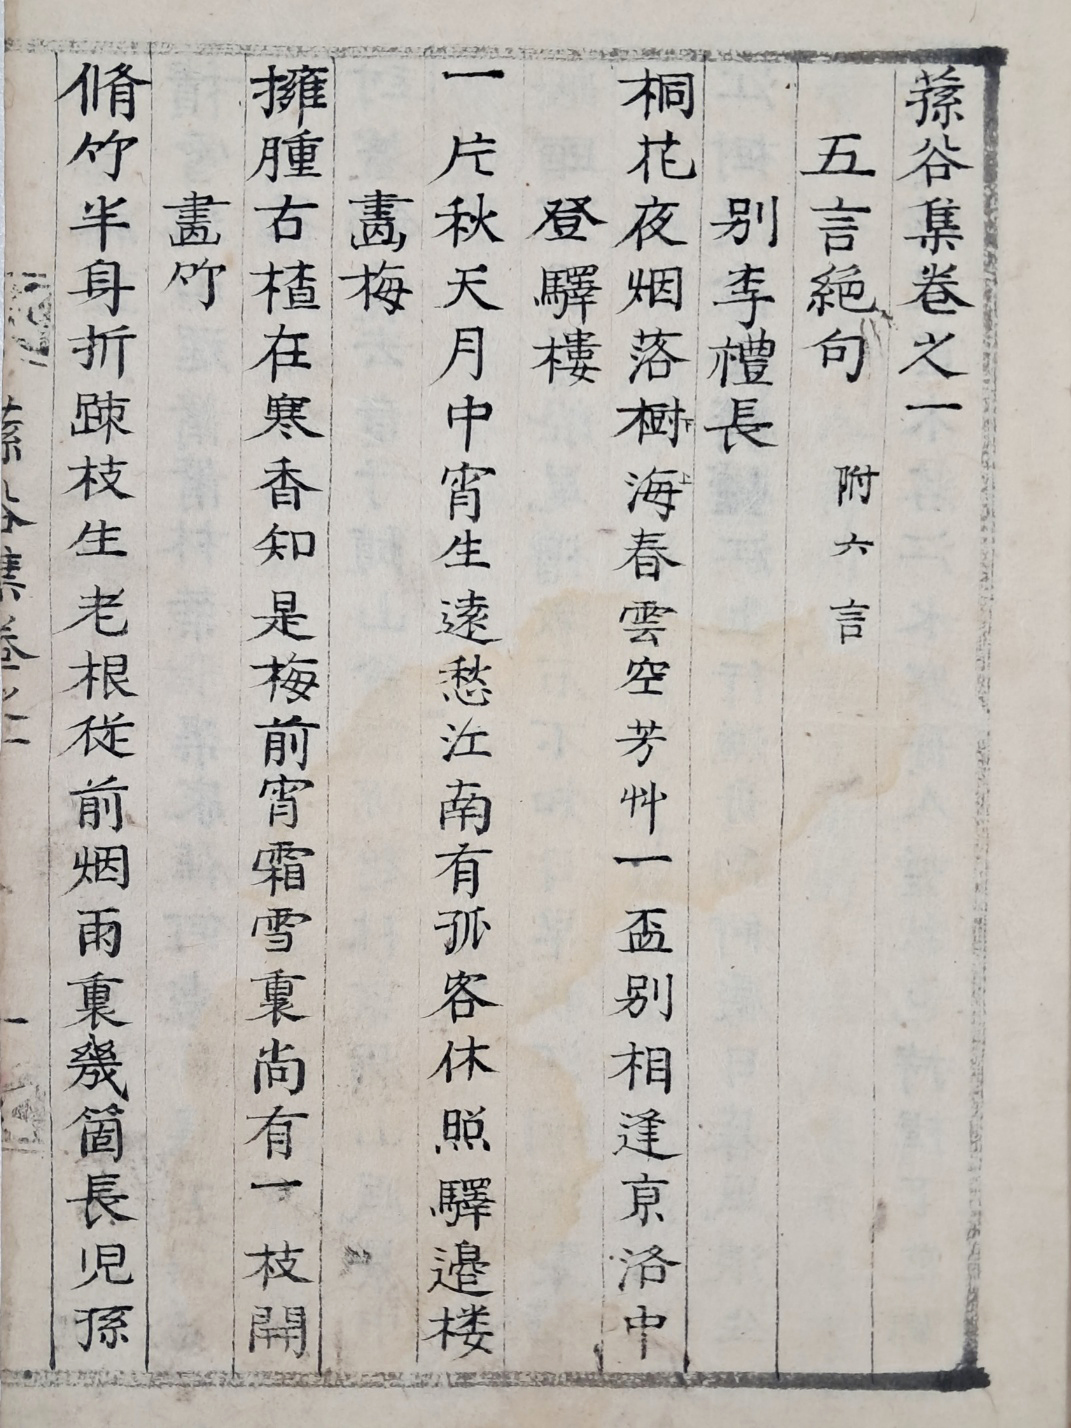 蓀谷集卷之一
五言絕句 附六言
別李禮長
桐花夜烟落樹下海上春雲空芳艸一盃別相逢京洛中
登驛樓
一片秋天月中宵生遠愁江南有孤客休照驛邊楼
畵梅
擁腫古楂在寒香知是梅前宵霜雪裏尚有一枝開
畵竹
脩竹半身折踈枝生老根從前烟雨裏幾箇長児孫
蓀谷集卷之一 一